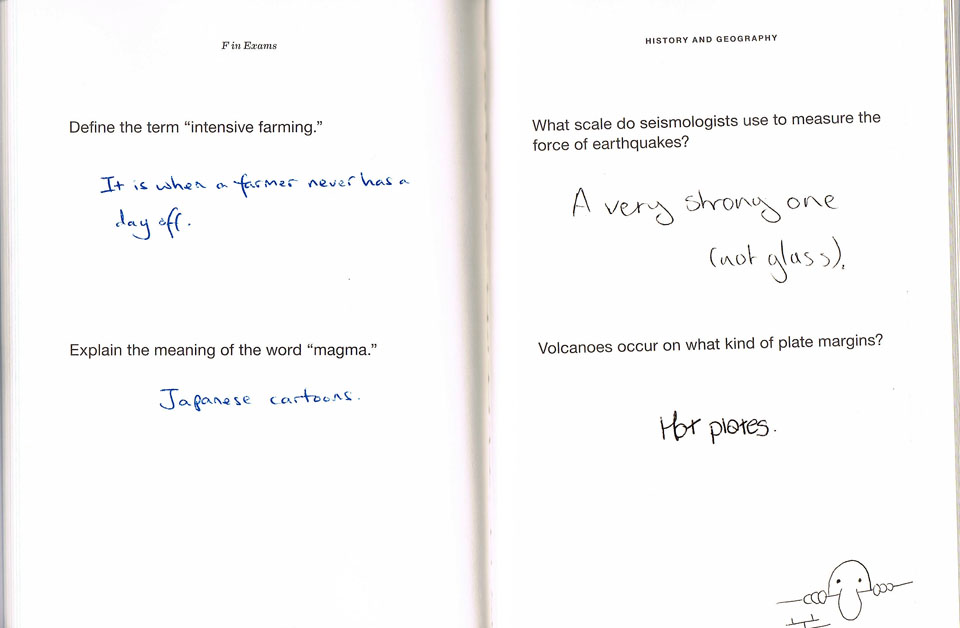 F in Exams
Define the term “intensive farming.”
It is when a farmer never has a
day off.
Explain the meaning of the word “magma.”
Japanese cartoons.
HISTORY AND GEOGRAPHY
What scale do seismologists use to measure the
force of earthquakes?
A very strong one
(not glass).
Volcanoes occur on what kind of plate margins?
Hot plates.